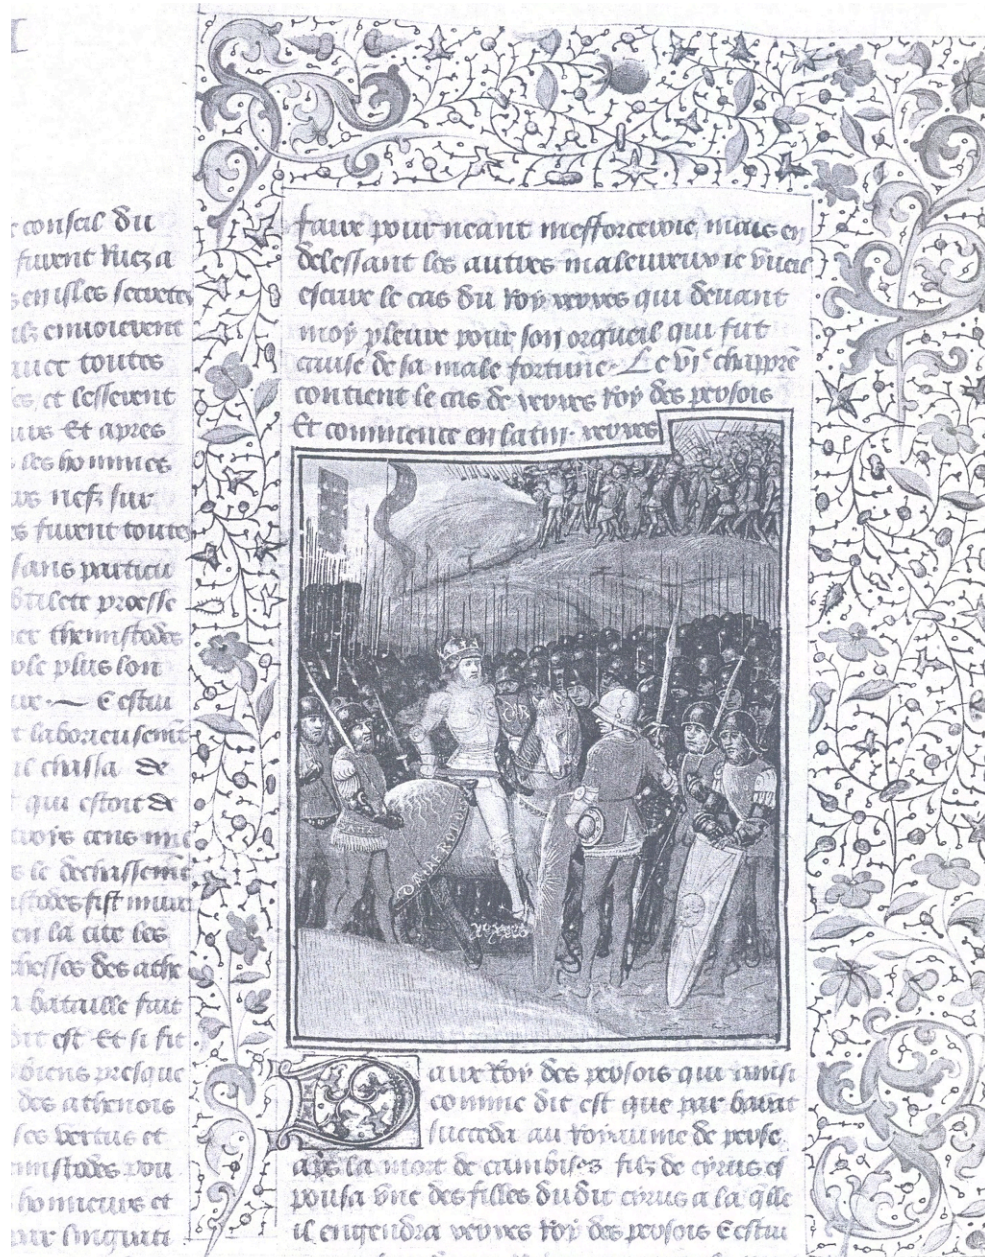 conseil du
furent ruez a
s en isles secretes
ilz envoierent
avec toutes
es et lesserent
urs Et apres
les hommes
urs nefz sur
es furent toutes
sans particu
prosse
themistodes
ple plus lon
ur Cestui
t laborieusemt
il chassa de
qui estoit de
trois cens mil
s le dechasseme
stodes fist muer
en la cite les
chesses des athe
a bataille fait
dit est Et si fit
biens presque
des athenois
ses vertus et
emistodes pou
homicure et
par
faire pour neant mefforceroie mais en
delessant les autres maleureux ie vueil
escrire le cas du roy xerxes qui devant
moy pleure pour son orgueil qui fut
cause de sa male fortune. Le vie chappre
contient le cas de xerxes roy des persois
Et commence en latin. xerxes
DAIRE ROI D
xerxes
Daire roy des persois qui ainsi
comme dit est que par barat
succeda au royaume de perse
aps la mort de cambises filz de cyrus es
pousa vne des filles dudit cyrus a la qlle
il engendra xerxes roy des persois Cestui